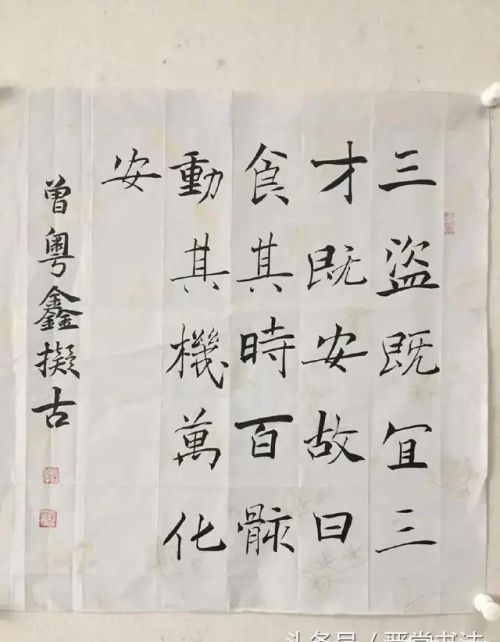 三盗既宜三
才既安故曰
食其時百骸
動其機萬化
安
曾粤鑫擬古
头条号/严堂书法